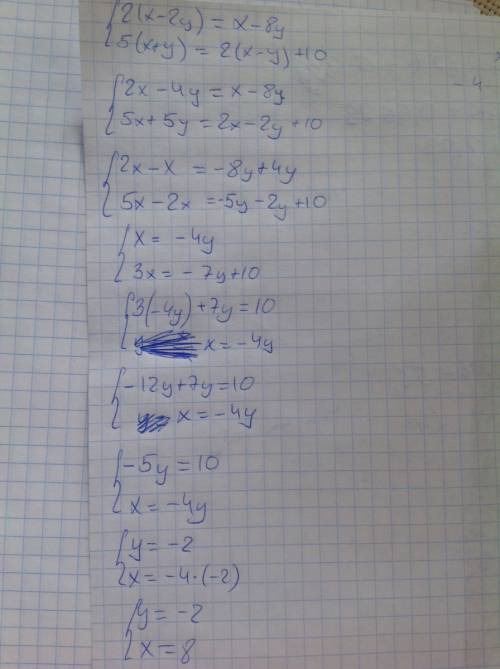 2(x-2y) = x-8y
5(x+y) = 2(x-y)+10
2x-4y = x-8y
-4
5x+5y = 2x-2y+10
2x-x = -8y+4y
5x-2x = -5y-2y+10
x = -4y
3x = -7y+10
3(-4y)+7y = 10
x = -4y
-12y+7y = 10
x = -4y
-5y = 10
x = -4y
y = -2
x = -4·(-2)
y = -2
x = 8